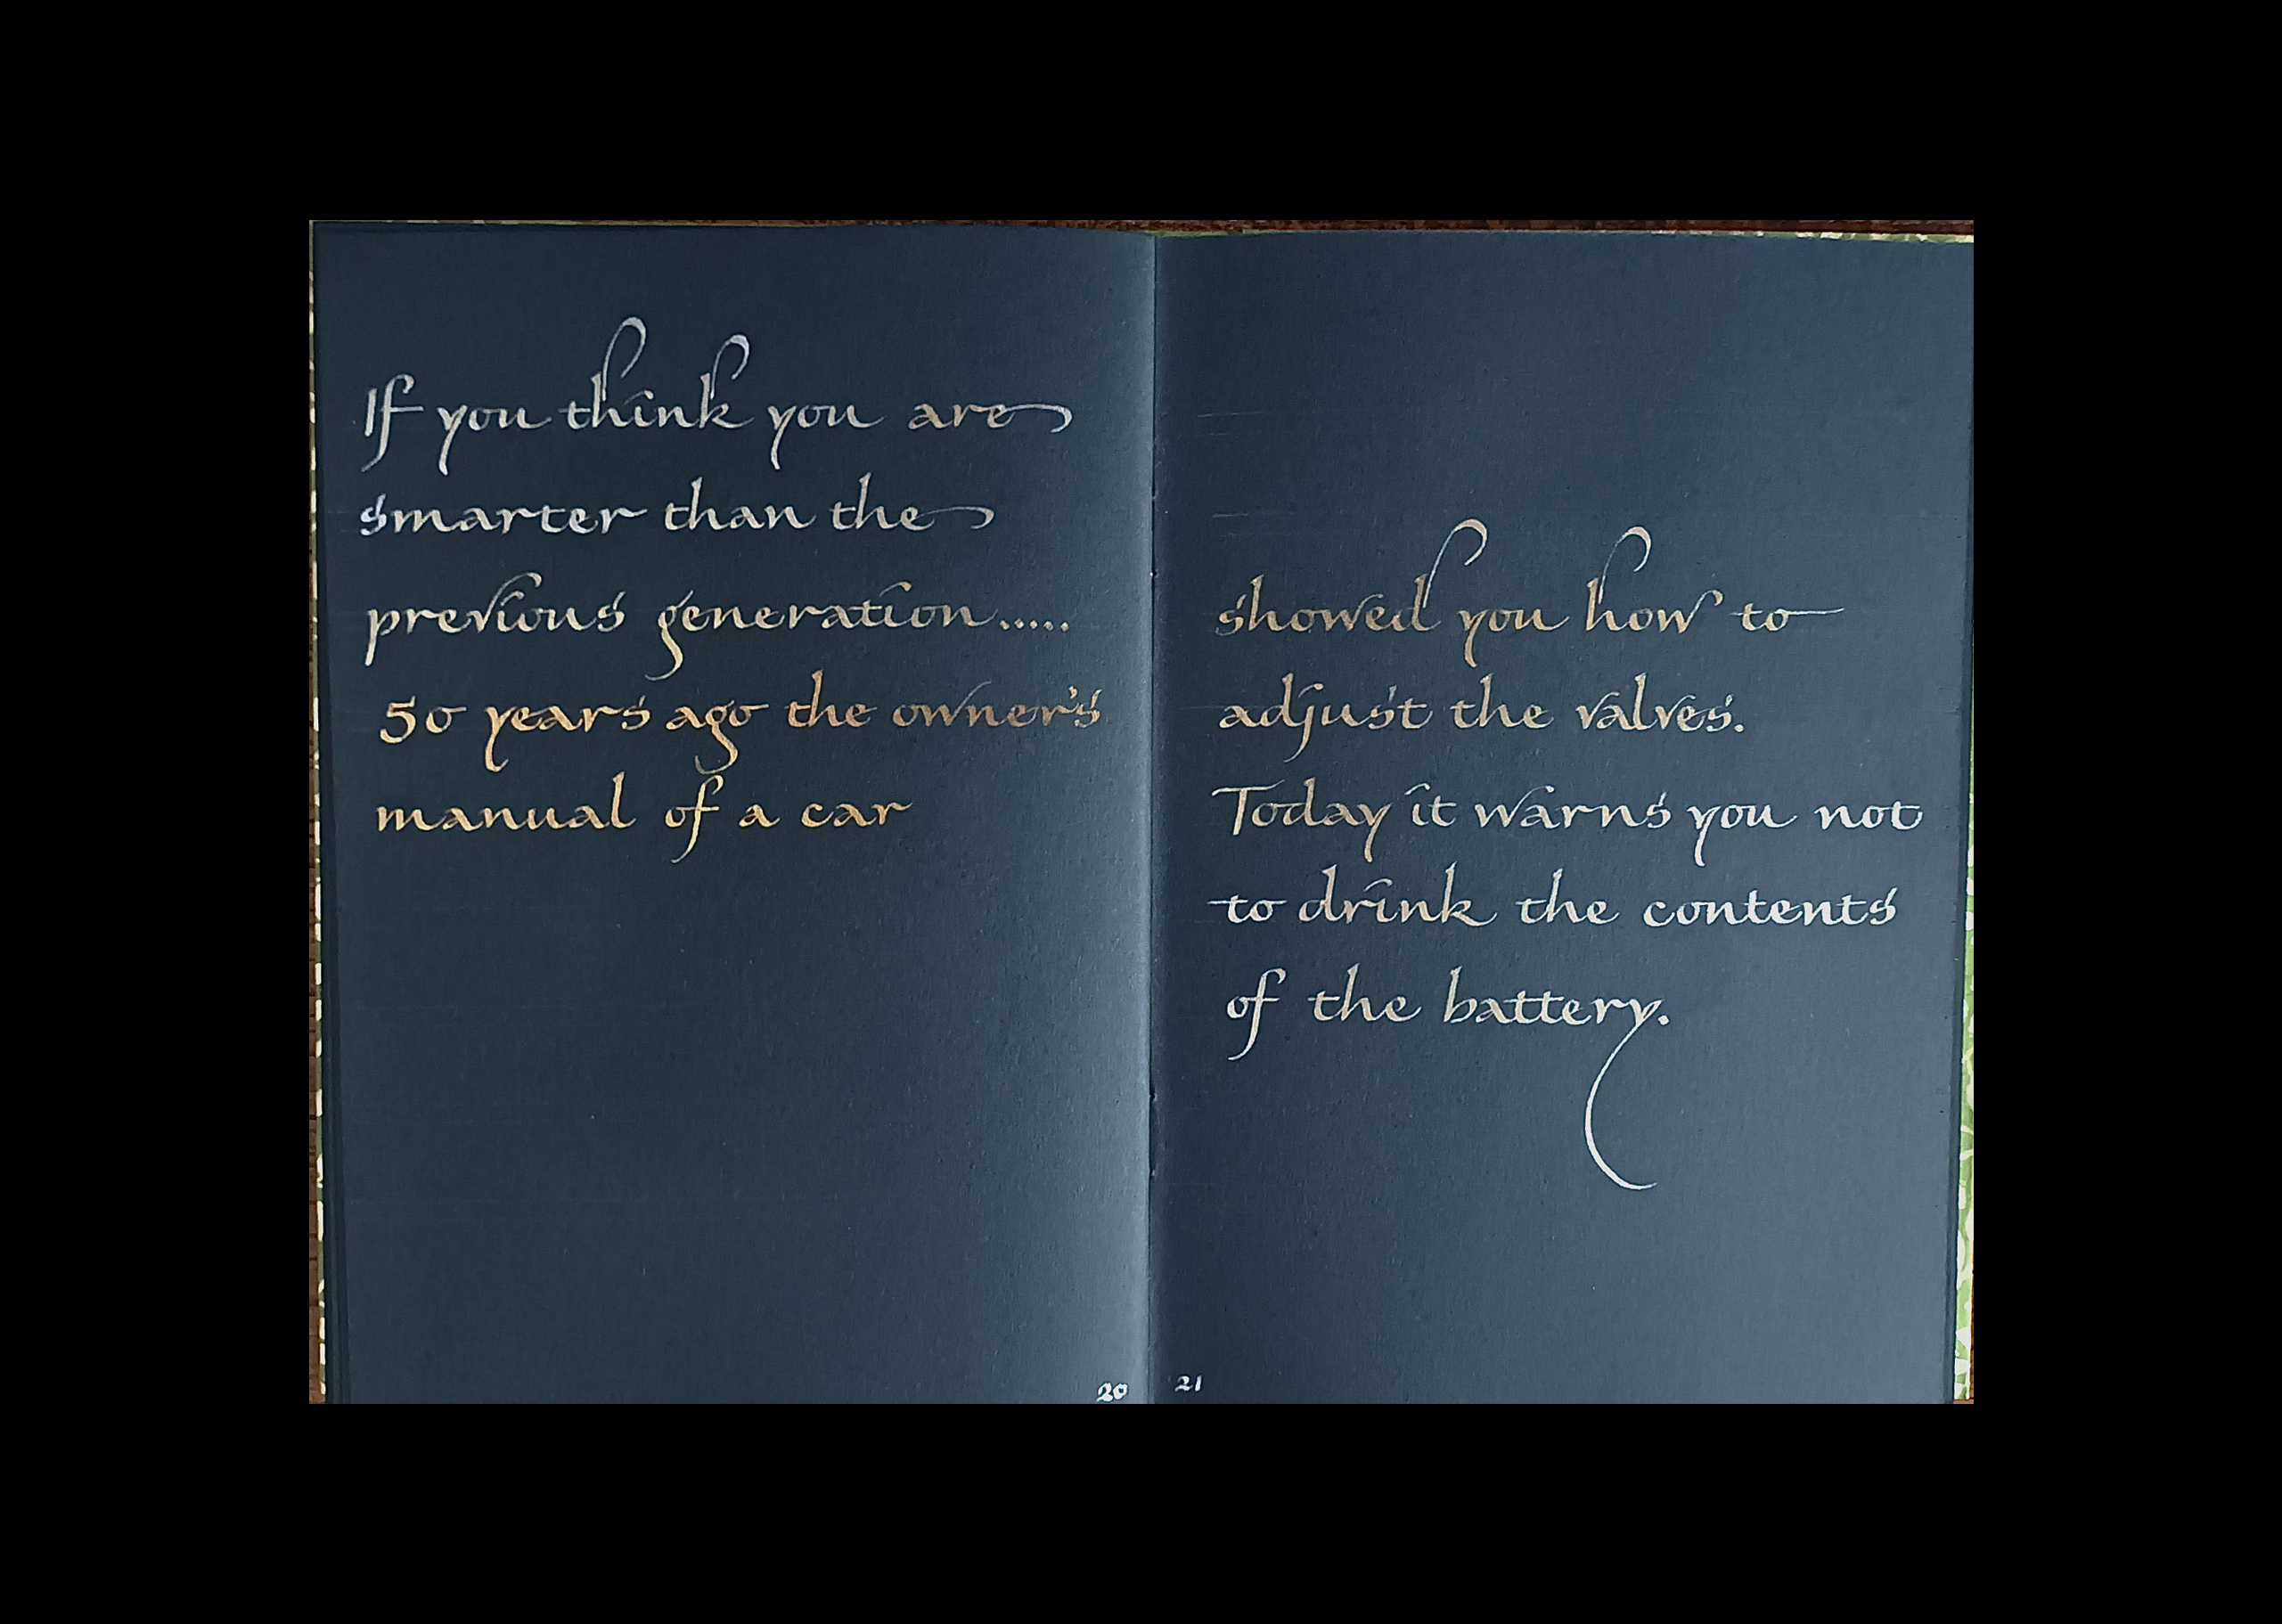 If you think you are
smarter than the
previous generation.....
50 years ago the owner's
manual of a car
20
showed you how to
adjust the valves.
Today it warns you not
to drink the contents
of the battery.
21